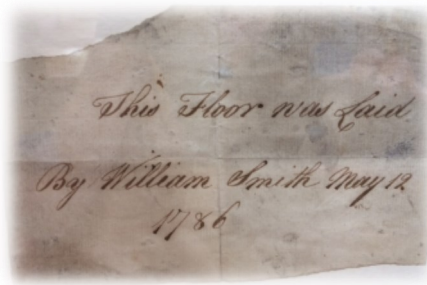 This Floor was Laid
By William Smith May 12
1786